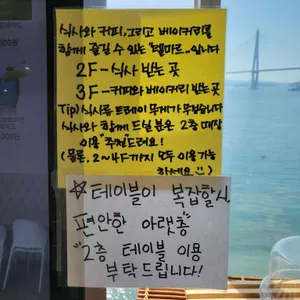 식사와 커피, 그리고 베이커리를
함께 즐길 수 있는 "델마르"입니다
2F - 식사 받는 곳
3F - 커피와 베이커리 받는 곳
Tip) 식사류 트레이 무게가 무겁습니다
식사와 함께 드실 분은 2층 매장
이용 "추천"드려요!
(물론, 2~4F까지 모두 이용가능
하세요 :)
☆테이블이 복잡할시,
편안한 아랫층
"2층 테이블 이용
부탁드립니다!